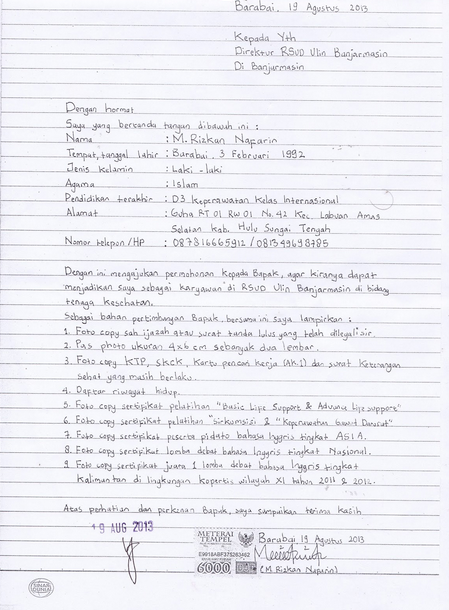 Barabai, 19 Agustus 2013
Kepada Yth
Direktur RSUD Ulin Banjarmasin
Di Banjarmasin
Dengan hormat
Saya yang bertanda tangan dibawah ini :
Nama : M. Rizkan Naparin
Tempat, tanggal lahir : Barabai, 3 Februari 1992
Jenis Kelamin : Laki - laki
Agama : Islam
Pendidikan terakhir : D3 Keperawatan Kelas Internasional
Alamat : Guha RT 01 RW 01 No. 42 Kec. Labuan Amas
Selatan kab. Hulu Sungai Tengah
Nomor telepon/HP : 087816665912 / 081349698785
Dengan ini mengajukan permohonan kepada Bapak, agar kiranya dapat
menjadikan saya sebagai karyawan di RSUD Ulin Banjarmasin di bidang
tenaga kesehatan.
Sebagai bahan pertimbangan Bapak, bersama ini saya lampirkan :
1. Foto copy sah ijazah atau surat tanda lulus yang telah dilegalisir.
2. Pas photo ukuran 4x6 cm sebanyak dua lembar.
3. Foto copy KTP, SKCK, Kartu pencari kerja (AK-1) dan surat Keterangan
sehat yang masih berlaku.
4. Daftar riwayat hidup.
5. Foto copy sertifikat pelatihan "Basic Life Support & Advance Life support"
6. Foto copy sertifikat pelatihan "Sirkumsisi & "Keperawatan Gawat Darurat"
7. Foto copy sertifikat peserta pidato bahasa Inggris tingkat ASIA.
8. Foto copy sertifikat lomba debat bahasa Inggris tingkat Nasional.
9. Foto copy sertifikat juara 1 lomba debat bahasa Inggris tingkat
Kalimantan di lingkungan kopertis wilayah XI tahun 2011 & 2012.
Atas perhatian dan perkenan Bapak, saya sampaikan terima kasih
19 AUG 2013
METERAI
TEMPEL
6000
Barabai, 19 Agustus 2013
(M. Rizkan Naparin)
SINAR
DUNIA